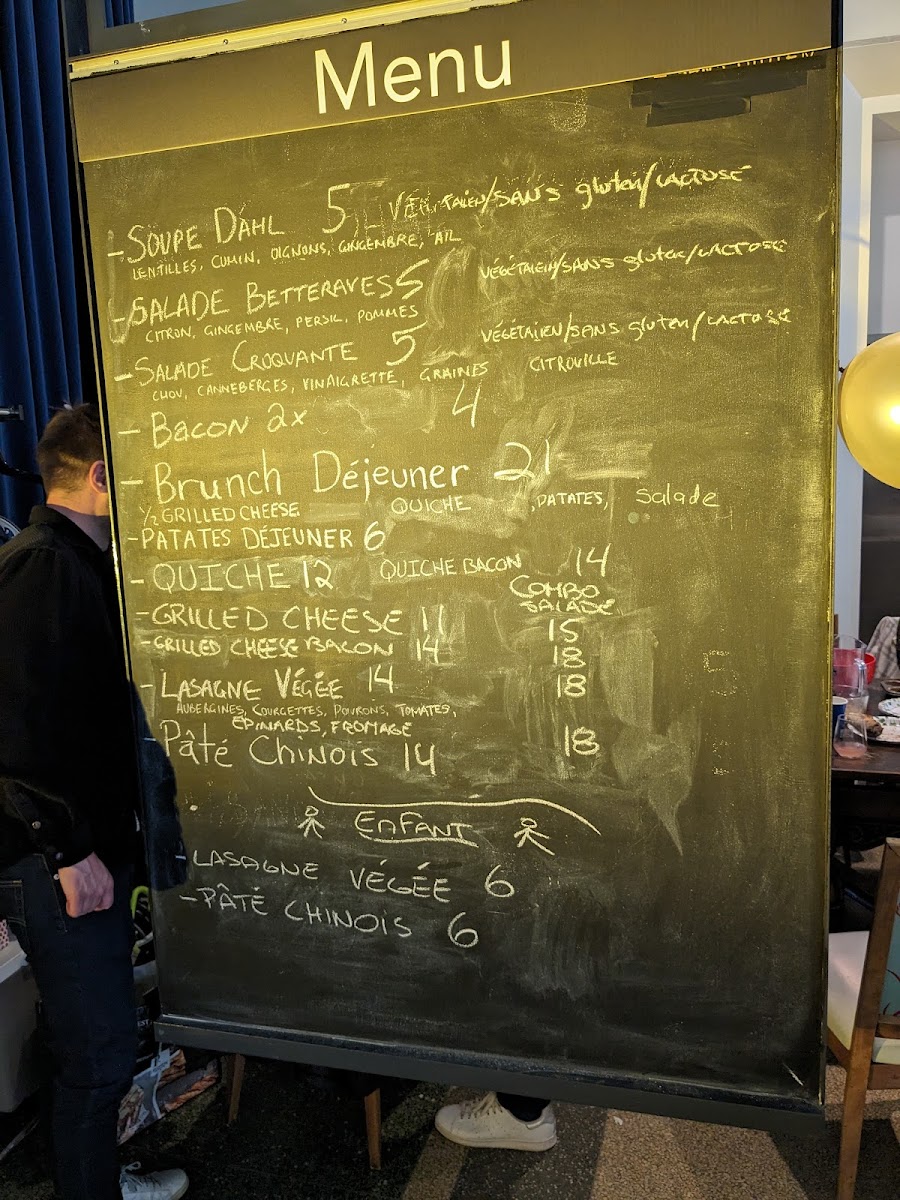 Menu
- SOUPE DAHL 5 VÉGÉTALIEN/SANS gluten/LACTOSE
LENTILLES, CUMIN, OIGNONS, GINGEMBRE, AIL
- SALADE BETTERAVES 5 VÉGÉTALEIN/SANS gluten/LACTOSE
CITRON, GINGEMBRE, PERSIL, POMMES
- SALADE CROQUANTE 5 VÉGÉTALIEN/SANS gluten/LACTOSE
CHOU, CANNEBERGES, VINAIGRETTE, GRAINES CITROUILLE
- BACON 2x 4
- Brunch Déjeuner 21
1/2 GRILLED CHEESE QUICHE , PATATES, Salade
- PATATES DÉJEUNER 6
- QUICHE 12 QUICHE BACON 14
COMBO SALADE
- GRILLED CHEESE 11 15
- GRILLED CHEESE BACON 14 18
- LASAGNE VÉGÉE 14 18
AUBERGINES, COURGETTES, POIVRONS, TOMATES,
ÉPINARDS, FROMAGE
Pâté Chinois 14 18
ENFANT
- LASAGNE VÉGÉE 6
- PÂTÉ CHINOIS 6